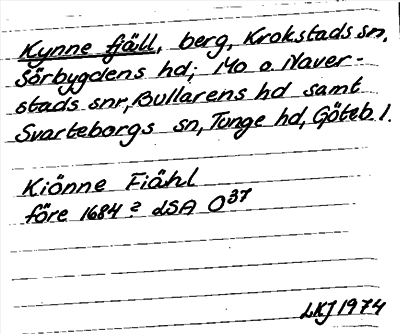 Kynne fjäll, berg, Krokstads sn,
Sörbygdens hd; Mo o. Naver-
stads snr, Bullarens hd samt
Svarteborgs sn, Tunge hd, Göteb l.
Kiönne Fiähl
före 1684? LSA O37
LKJ 1974